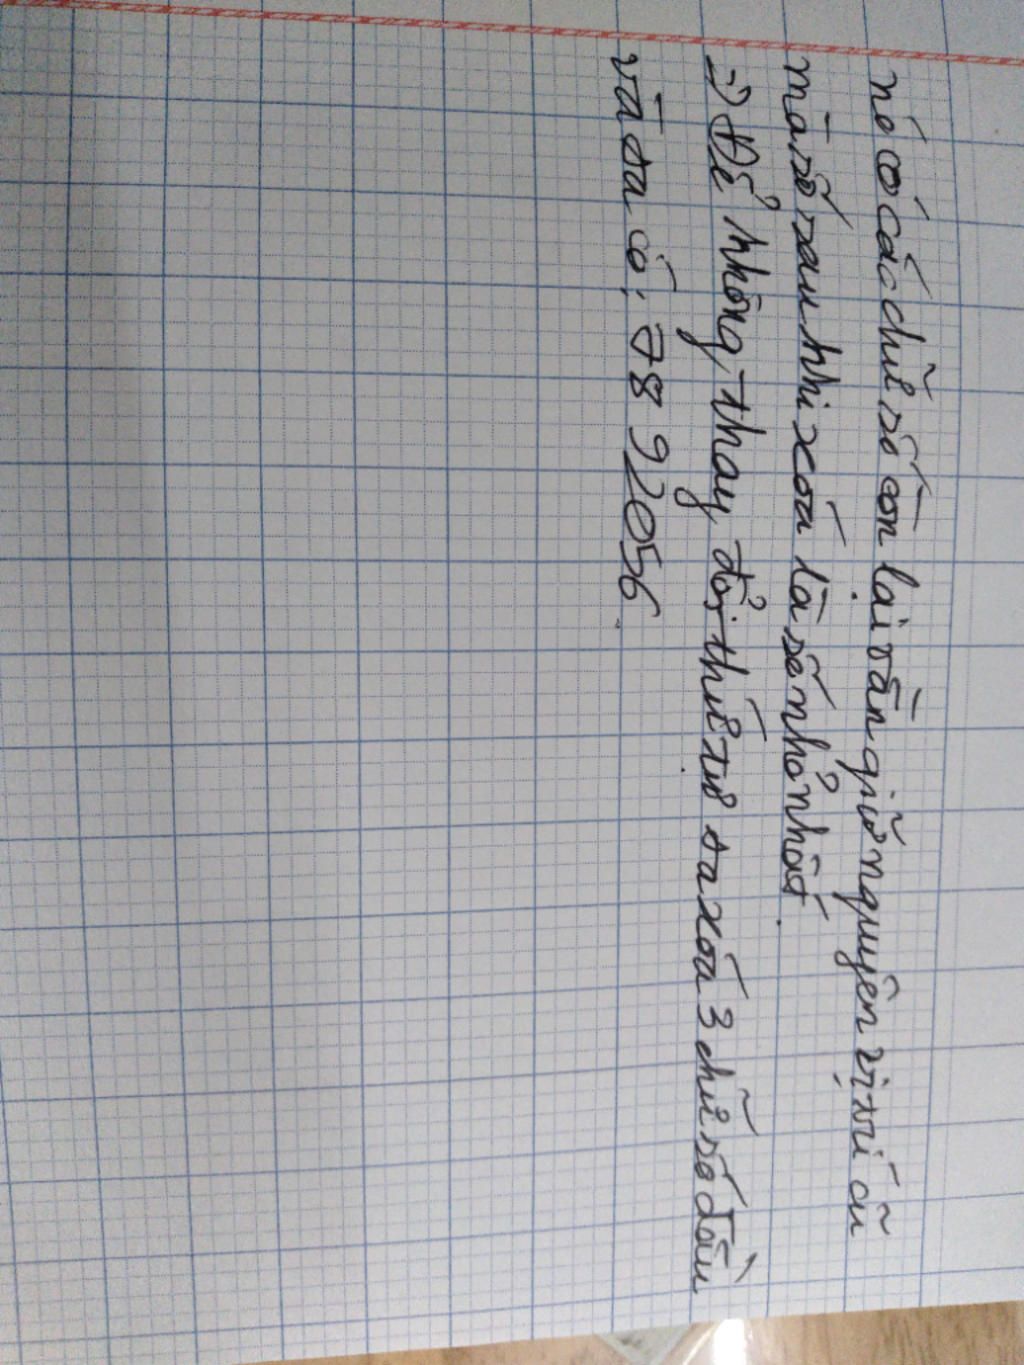 nó có các chữ số còn lại vẫn giữ nguyên vị trí cũ
mà số sau khi xoá là số nhỏ nhất.
=> Để không thay đổi thứ tự ta xoá 3 chữ số đầu
và ta có: 78 92056.